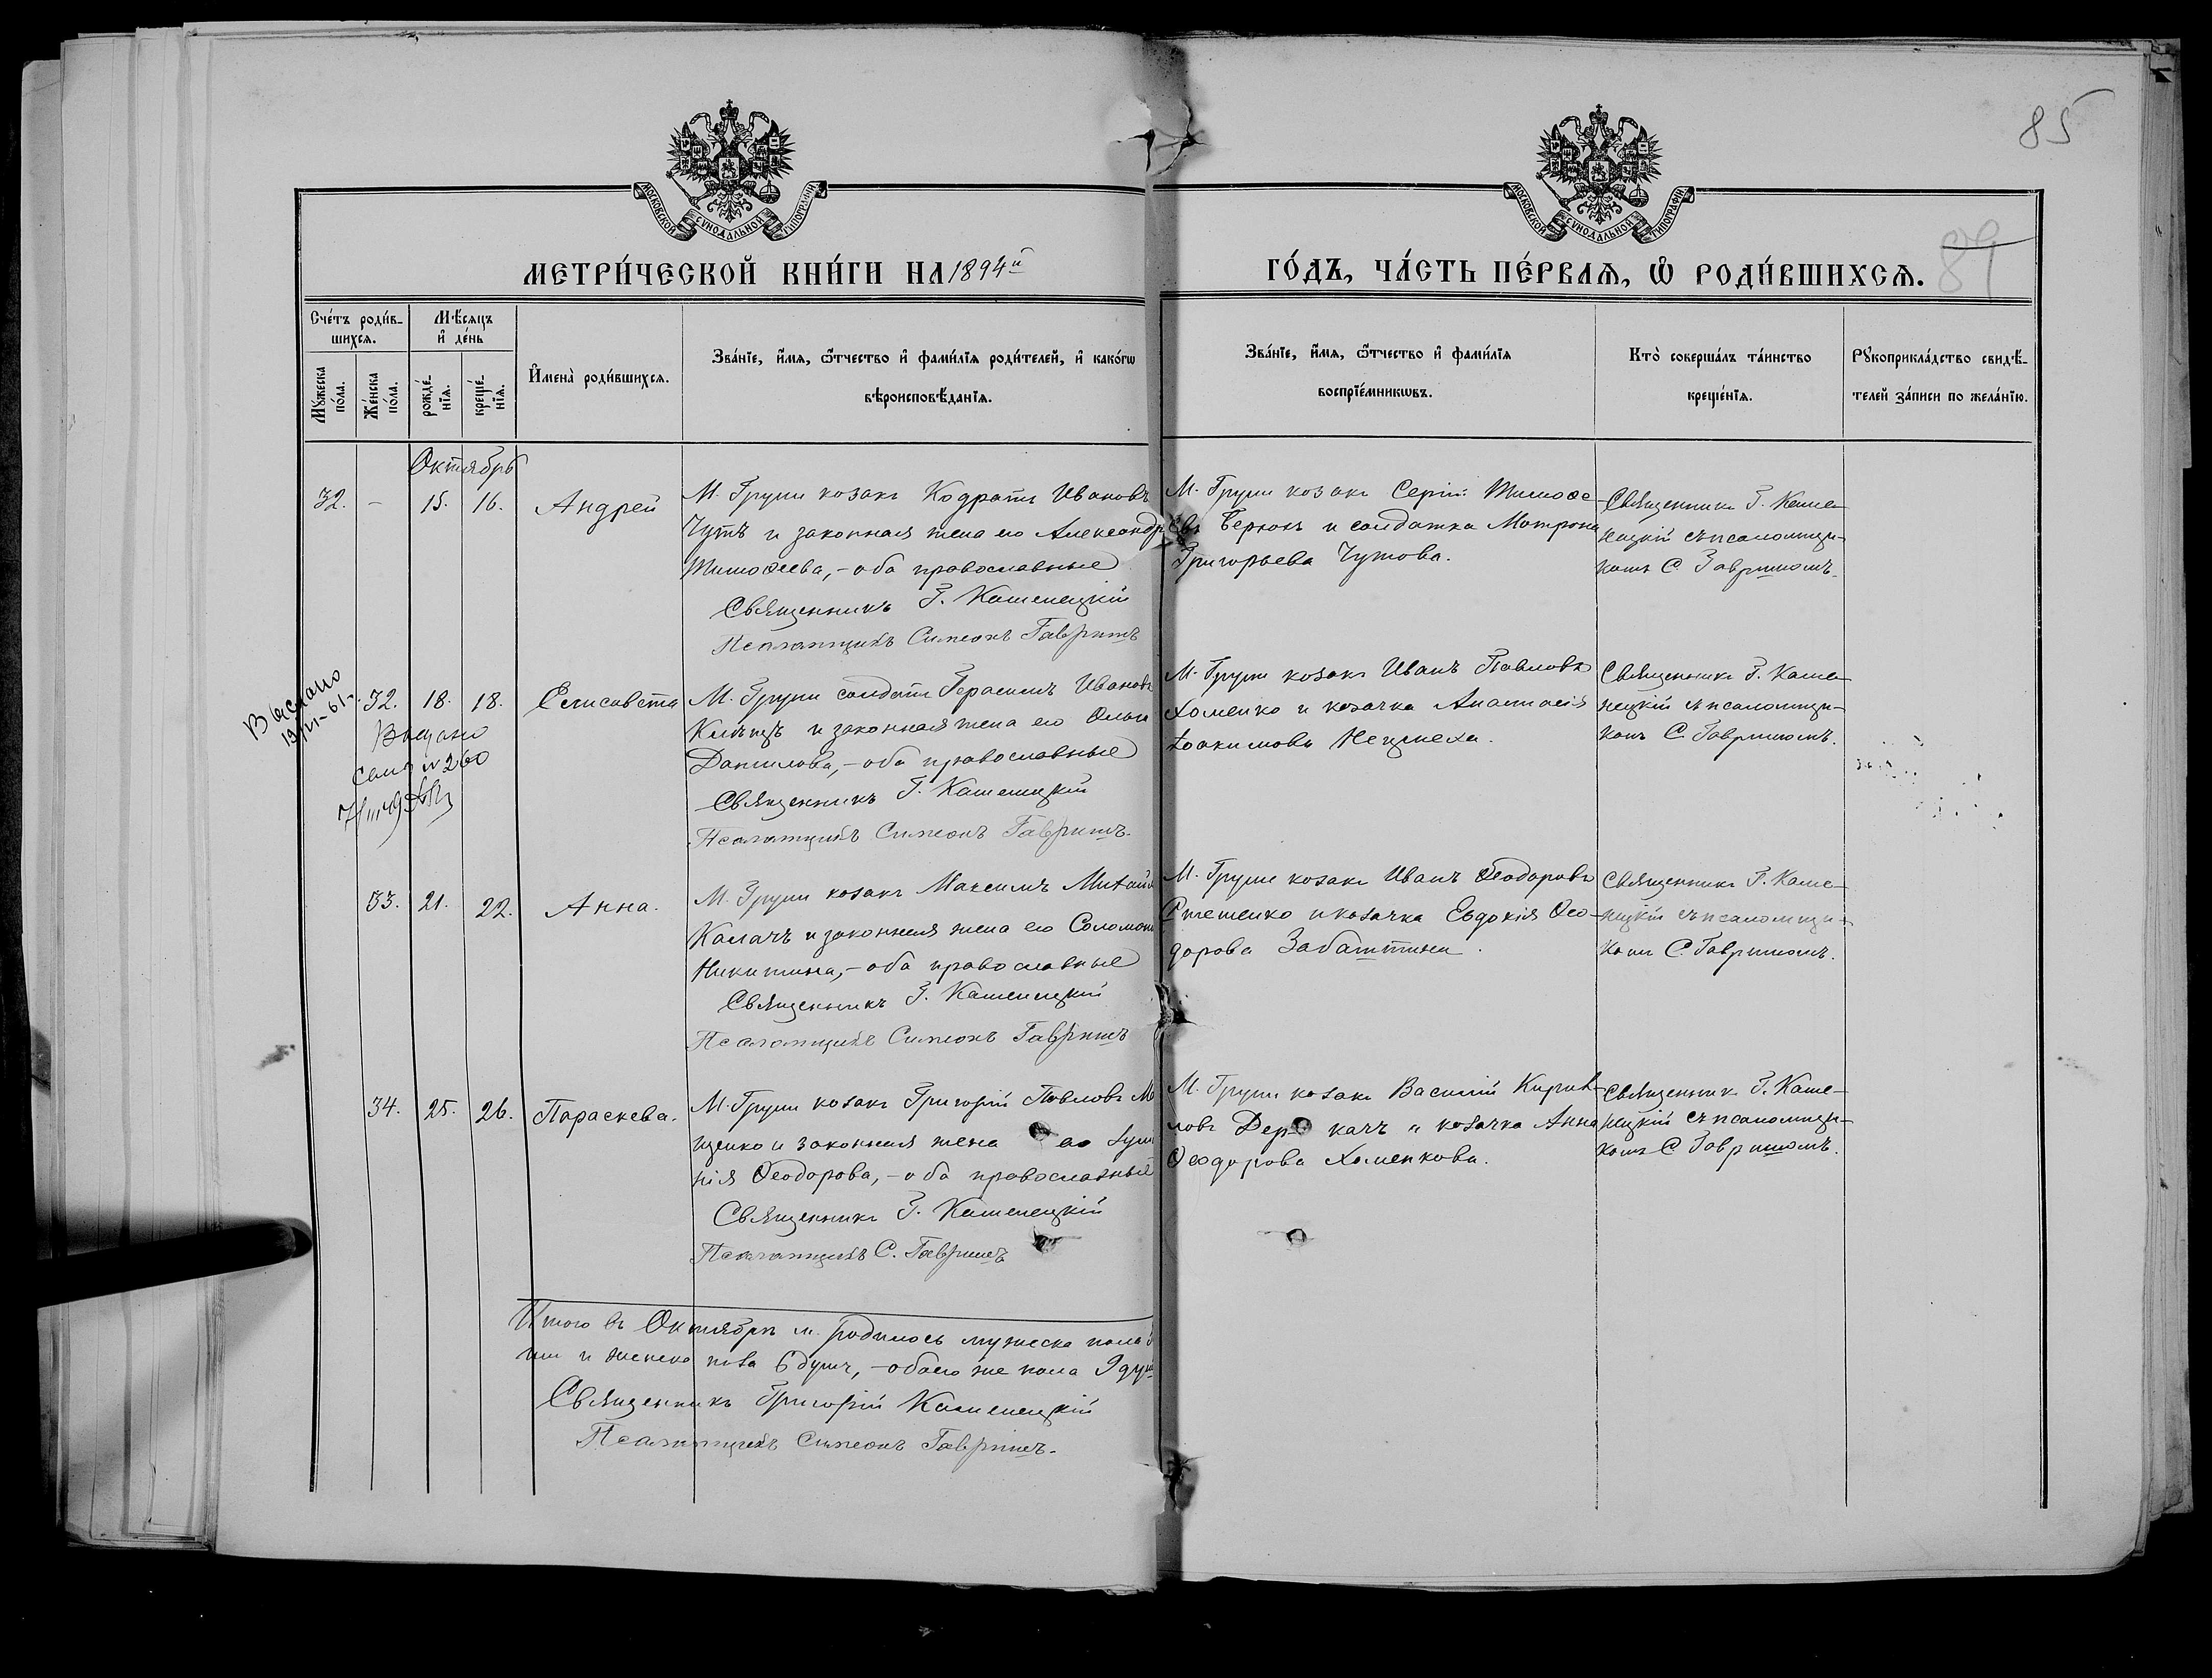 85
МОСКОВСКОЙ СѴНОДАЛЬНОЙ ТИПОГРАФІИ
МОСКОВСКОЙ СѴНОДАЛЬНОЙ ТИПОГРАФІИ
МЕТРИ́ЧЕСКОЙ КНИ́ГИ НА 1894й
ГО́ДЪ, ЧА́СТЬ ПЕ́РВАѦ, Ѡ҆ РОДИ́ВШИХСѦ.
89
Сче́тъ роди́в-
шихсѧ.
Мꙋ́жеска по́ла.
Же́нска по́ла.
Мѣ́сѧцъ
и҆ де́нь
рожде́-нїѧ.
креще́-нїѧ.
И҆мена̀ роди́вшихсѧ.
Зва́нїе, и҆́мѧ, ѻ҆́тчество и҆ фами́лїѧ роди́телей, и҆ како́гѡ
вѣроисповѣ́данїѧ.
Зва́нїе, и҆́мѧ, ѻ҆́тчество и҆ фами́лїѧ
воспрїе́мникѡвъ.
Кто̀ соверша́лъ та́инство
креще́нїѧ.
Рꙋкоприкла́дство свидѣ́-
телей за́писи по жела́нїю.
Октябрь
32. - 15. 16. Андрей
М. Груни козакъ Кодратъ Ивановъ
Чутъ и законная жена его Александр
Тимоѳеева, - оба православные
Священникъ Г. Каменецкій
Псаломщикъ Симеонъ Гавришъ
М. Груни козакъ Сергій Тимоѳе-
евъ и солдатка Матрона
Григорьева Чутова.
Священникъ Г. Каме-
нецкій съ псаломщи-
комъ С. Гавришомъ.
Выслано
32. 18. 18. Елисавета
Выдано
№ 260
М. Груни солдатъ Герасимъ Ивановъ
и законная жена его
Данилова, - оба православные
Священникъ Г. Каменецкій
Псаломщикъ Симеонъ Гавришъ.
М. Груни козакъ Иванъ Павловъ
Хоменко и козачка Анастасія
Іоакимова
Священникъ Г. Каме-
нецкій съ псаломщи-
комъ С. Гавришомъ.
33. 21. 22. Анна.
М. Груни козакъ Максимъ Михайл
Калачъ и законная жена его Соломон
Никитина, - оба православные
Священникъ Г. Каменецкій
Псаломщикъ Симеонъ Гавришъ
М. Груни козакъ Иванъ Ѳеодоровъ
и козачка Евдокія Ѳео-
дорова Забаштина.
Священникъ Г. Каме-
нецкій съ псаломщи-
комъ С. Гавришомъ.
34. 25. 26. Параскева.
М. Груни козакъ Григорій Павловъ М
щенко и законная жена его
нія Ѳеодорова, - оба православные
Священникъ Г. Каменецкій
Псаломщикъ С. Гавришъ
М. Груни козакъ Василій Кирил-
ловъ Деркачъ и козачка Анна
Ѳеодорова Хоменкова.
Священникъ Г. Каме-
нецкій съ псаломщи-
комъ С. Гавришомъ.
Итого въ Октябрѣ м. родилось мужеска пола
и женска пола 6 душъ, - обоего же пола 9 душ
Священникъ Григорій Каменецкій
Псаломщикъ Симеонъ Гавришъ.